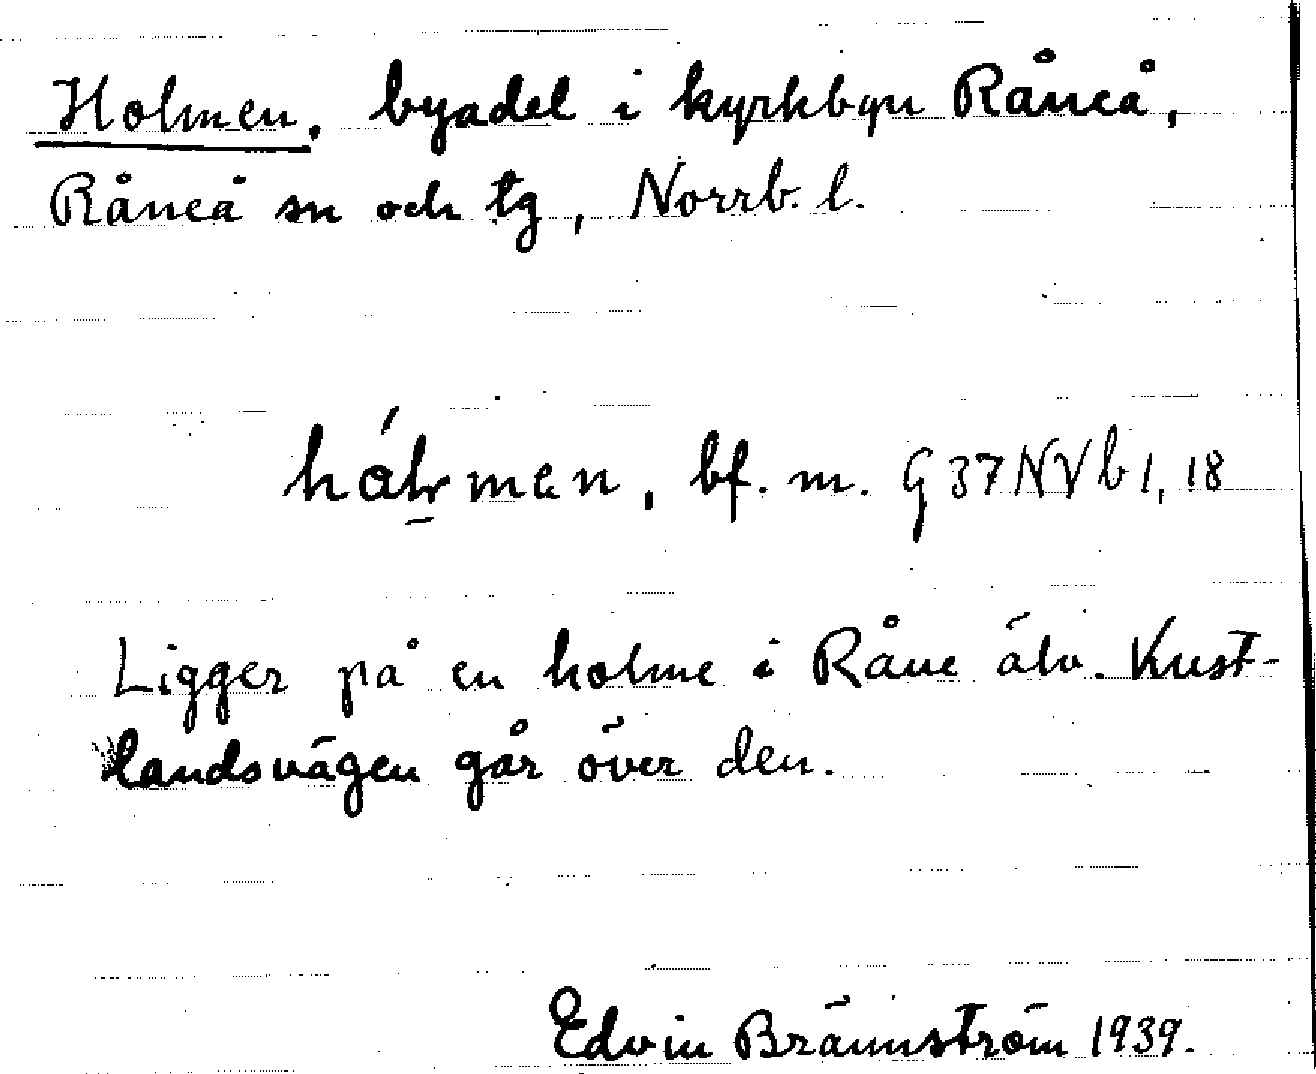 Holmen, byadel i kyrkbyn Råneå,
Råneå sn och tg, Norrb. l.
bf. m. G 37 NV b 1, 18
Ligger på en holme i Råne älv. Kust-
landsvägen går över den.
Edvin Brännström 1939.